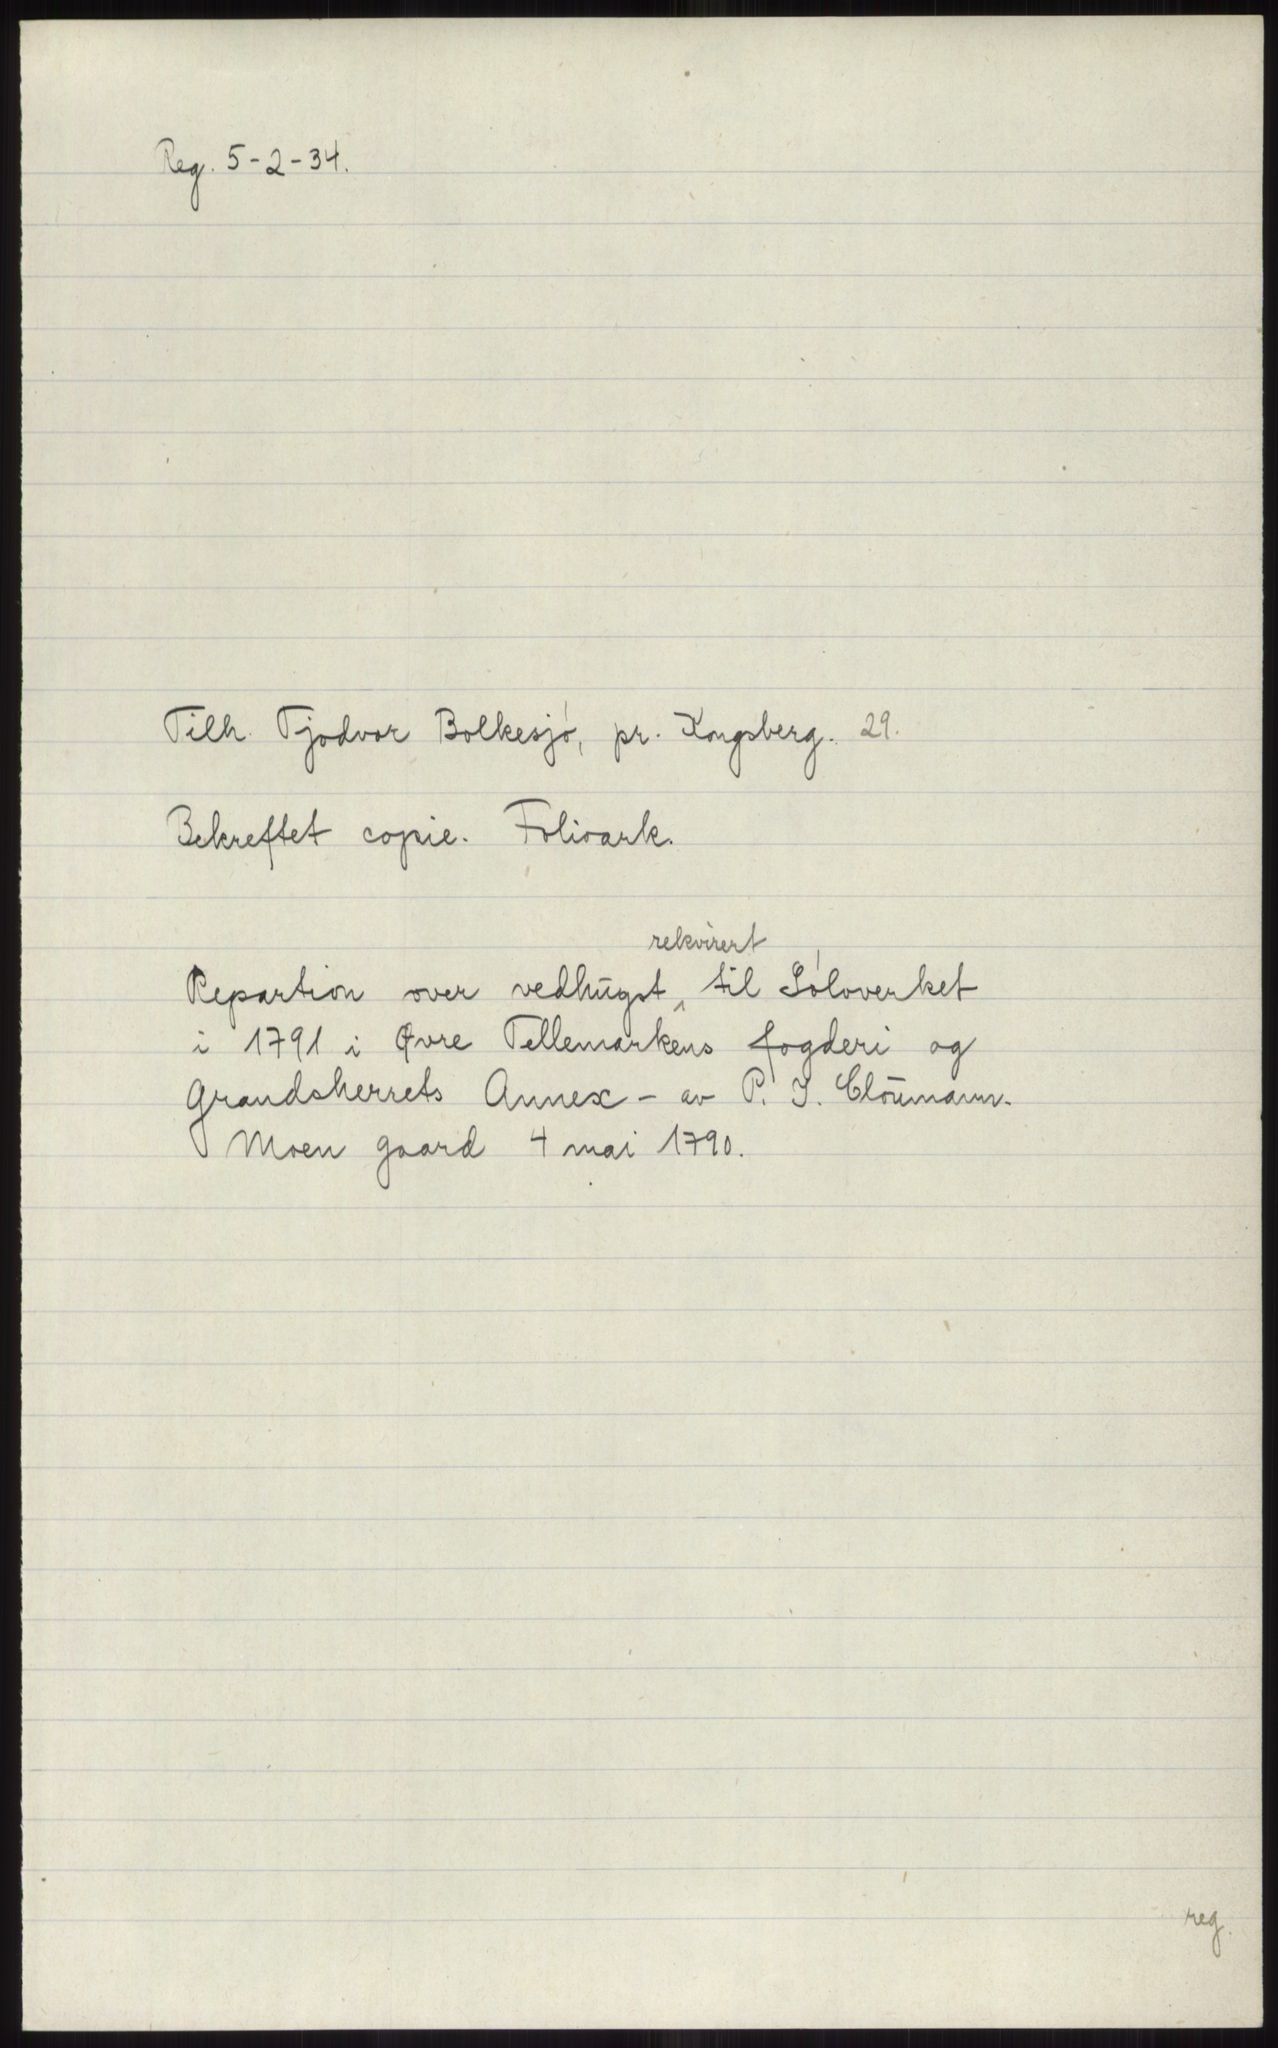 Reg. 5-2-34.
Tilh. Tjodvor Bolkesjó, pr. Kongsberg. 29.
Bekreftet copie. Folioark.
rekvirert
Repartion over vedhūgst ^ til Sóloverket
i 1791 i Øvre Tellemarkens fogderi og
Grandsherrets Annex - av P. J. Cloūmann.
Moen gaard 4 mai 1790.
reg.